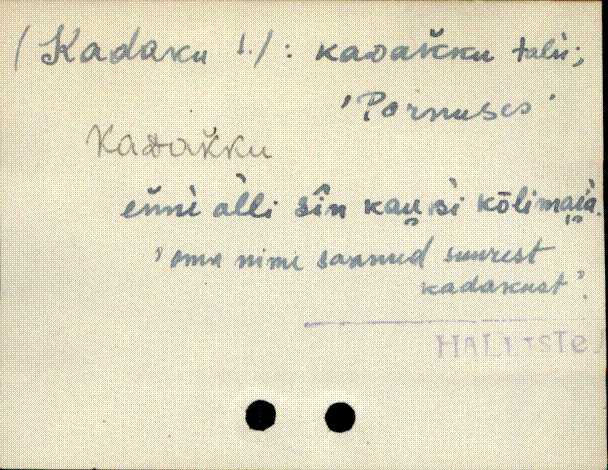 (Kadaku t.): kaᴅaǩku talù;
'Pornuses'
Kaᴅaǩku
eǹnè àlli sîn kau si kõlimaià.
'oma nime saanud suurest
kadakast'.
HALLISTE